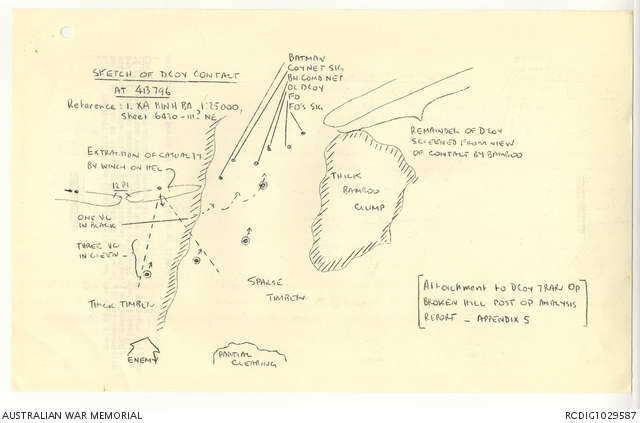 SKETCH OF DCOY CONTACT
AT 413796
Reference: 1. XA BINH BA, 1:25,000,
Sheet 6430-III NE
BATMAN
COY NET SIG
BN COMD NET
OC DCOY
FO
FO'S SIG
REMAINDER OF DCOY
SCREENED FROM VIEW
OF CONTACT BY BAMBOO
EXTRACTION OF CASUALTY
BY WINCH ON HEL
12 PL
THICK
BAMBOO
CLUMP
ONE VC
IN BLACK
THREE VC
IN GREEN
SPARSE
TIMBER
THICK TIMBER
Attachment to DCOY 7RAR OP
BROKEN HILL POST OP ANALYSIS
REPORT - APPENDIX 5
ENEMY
PARTIAL
CLEARING
AUSTRALIAN WAR MEMORIAL
RCDIG1029587